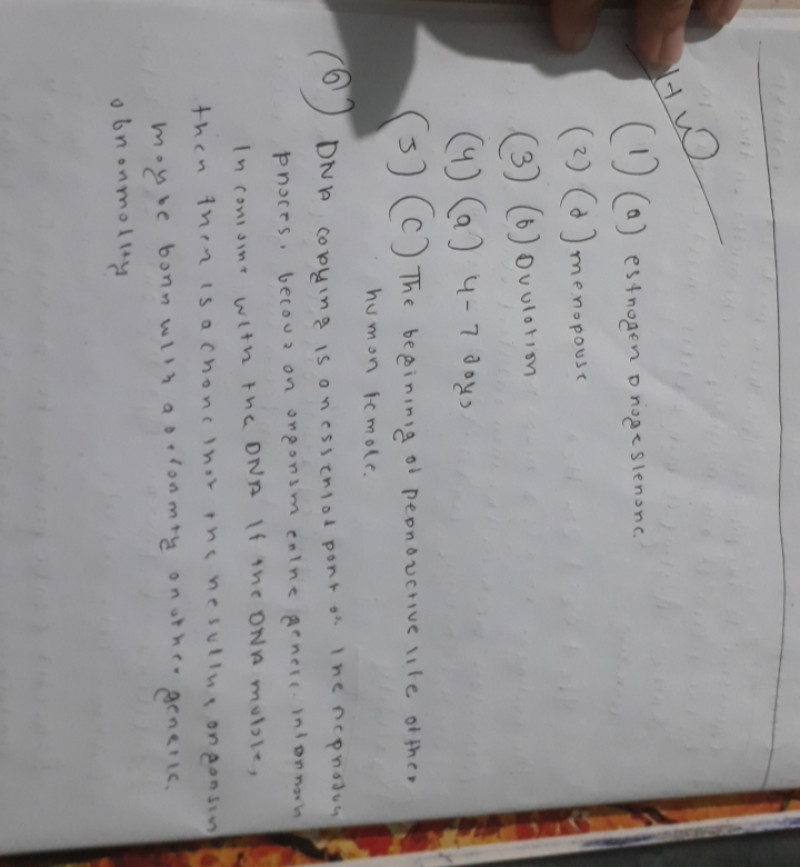 H W
(1) (a) estnogen pnogeslenone.
(2) (d) menopouse
(3) (b) Ovulation
(4) (a) 4-7 days
(5) (c) The begininig of Repnoductive life of ther
human female.
(6) DNA copying is an essental pant of the repnoduc
pnoces. becous an onganism entine genetc. infonmoth
In contoins with the DNA If the DNA mutate,
then then is a chanc that the nesulting onganism
maybe bonn with a defonmty on other genetic.
abnonmality